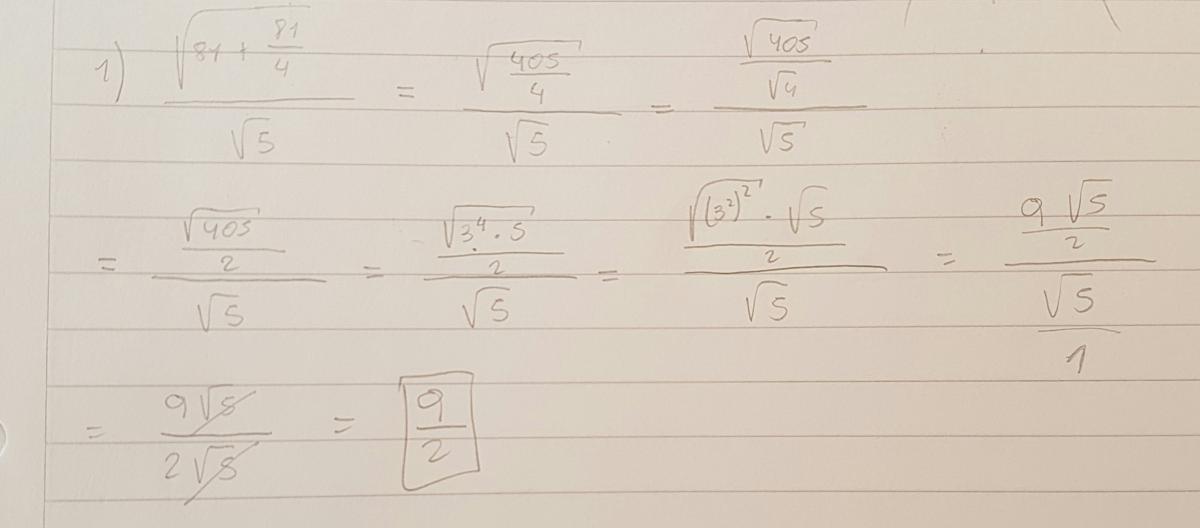 1) \frac{\sqrt{81 + \frac{81}{4}}}{\sqrt{5}} = \frac{\sqrt{\frac{405}{4}}}{\sqrt{5}} = \frac{\frac{\sqrt{405}}{\sqrt{4}}}{\sqrt{5}}
= \frac{\frac{\sqrt{405}}{2}}{\sqrt{5}} = \frac{\frac{\sqrt{3^4 \cdot 5}}{2}}{\sqrt{5}} = \frac{\frac{\sqrt{(3^2)^2} \cdot \sqrt{5}}{2}}{\sqrt{5}} = \frac{\frac{9\sqrt{5}}{2}}{\frac{\sqrt{5}}{1}}
= \frac{9\sqrt{5}}{2\sqrt{5}} = \boxed{\frac{9}{2}}